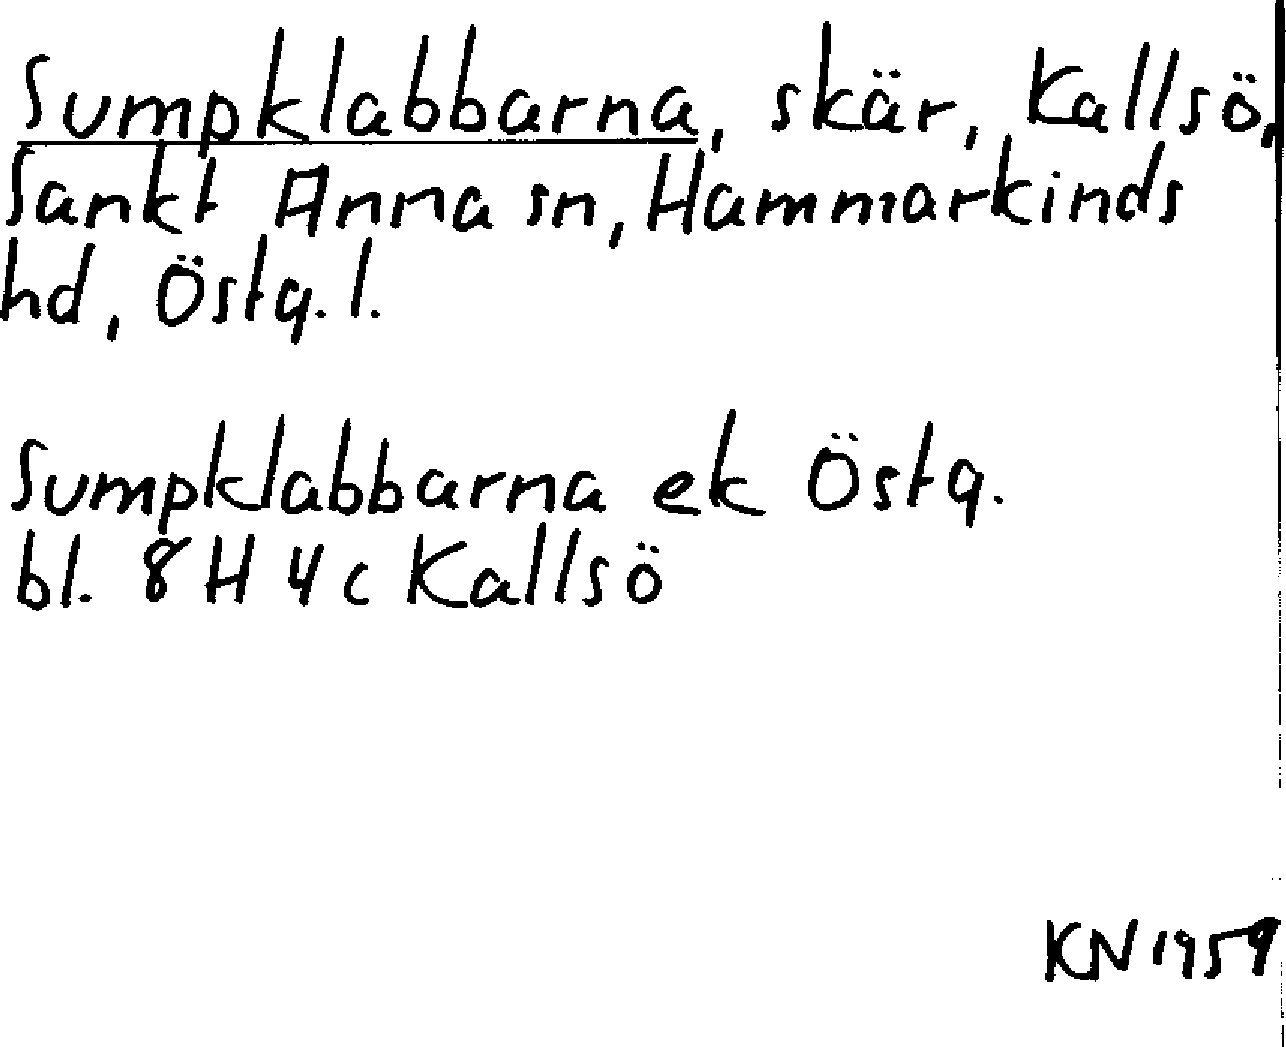 Sumpklabbarna, skär, Kallsö,
Sankt Anna sn, Hammarkinds
hd, Östg. l.
Sumpklabbarna ek Östg.
bl. 8H 4c Kallsö
KN 1959